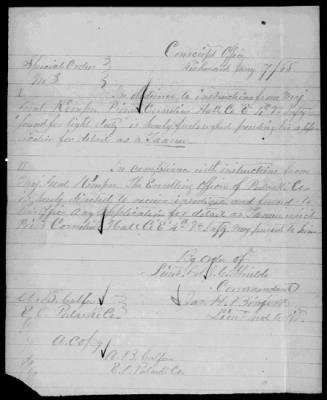 Conscript Office
Richmond Jany 7/65
Special Orders
No 3
I. In obedience to instructions from Maj
Genl Kemper Private Cornelius Hall Co E 4th Va Infty
found for light duty is hereby furloughed pending his appli
cation for detail as a Tanner
II. In compliance with instructions from
Maj Genl Kemper The Enrolling Officer of Pulaski Co
is hereby directed to receive and forward to
this Office any application for detail as Tanner which
Priv Cornelius Hall Co E 4th Va Infty may present to him
By order of
Lieut Col J. C. Shields
Commandant
Lieut and
A. B.
E. O. Pulaski Co
A Copy
A. B.
E. O. Pulaski Co